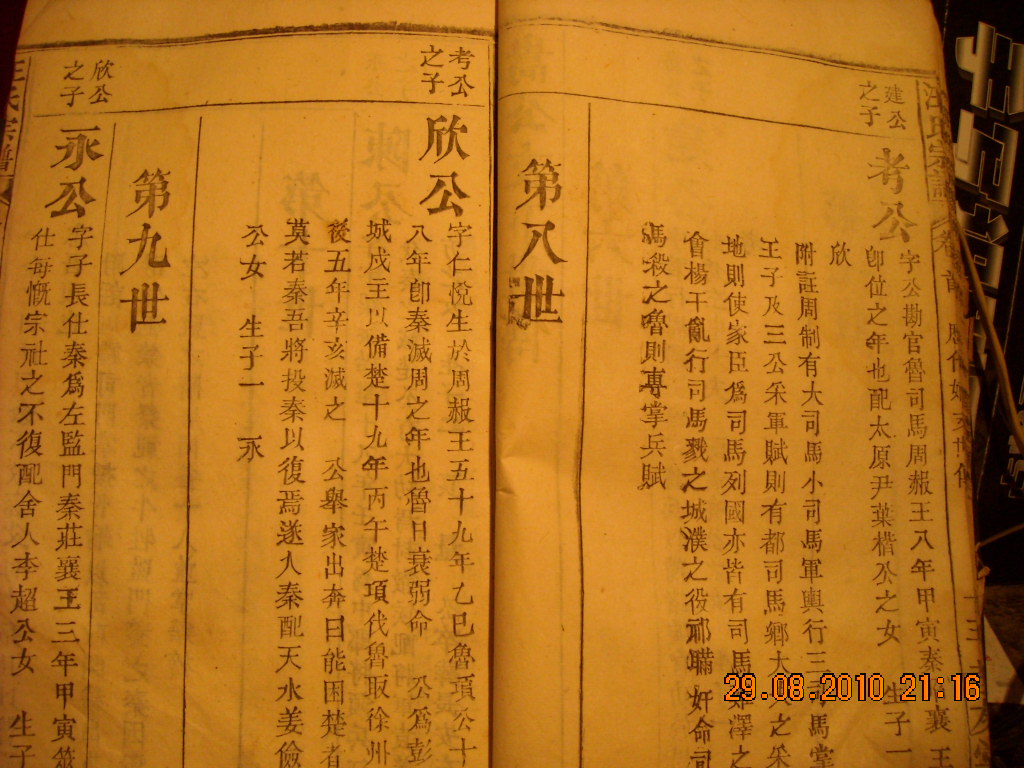 建公
之子
考公
字公勘官魯司馬周赧王八年甲寅秦襄王
卽位之年也配太原尹葉楷公之女 生子一
欣
附註周制有大司馬小司馬軍輿行三司馬掌
王子及三公采軍賦則有都司馬鄉大夫之采
地則使家臣爲司馬列國亦皆有司馬如澤之
會楊干亂行司馬戮之城濮之役祁瞞奸命司
馬殺之魯則專掌兵賦
第八世
考公
之子
欣公
字仁悅生於周赧王五十九年乙巳魯頃公十
八年卽秦滅周之年也魯日衰弱命 公爲彭
城戍主以備楚十九年丙午楚項伐魯取徐州
後五年辛亥滅之 公舉家出奔曰能困楚者
莫若秦吾將投秦以復焉遂入秦配天水姜儉
公女 生子一 永
第九世
欣公
之子
永公
字子長仕秦爲左監門秦莊襄王三年甲寅築
仕每慨宗社之不復配舍人李超公女 生子
29.08.2010 21:16